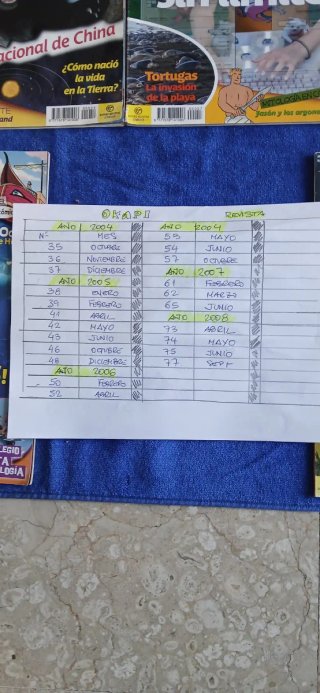 acional de China
¿Cómo nació
la vida
en la Tierra?
Tortugas
La invasión
de la playa
MITOLOGÍA
Jasón y los argona
OKAPI REVISTA
AÑO 2004
Nº MES
35 OCTUBRE
36 NOVIEMBRE
37 DICIEMBRE
AÑO 2005
38 ENERO
39 FEBRERO
41 ABRIL
42 MAYO
43 JUNIO
46 OCTUBRE
48 DICIEMBRE
AÑO 2006
50 FEBRERO
52 ABRIL
AÑO
MAYO
54 JUNIO
57 OCTUBRE
AÑO 2007
61 FEBRERO
62 MARZO
65 JUNIO
AÑO 2008
73 ABRIL
74 MAYO
75 JUNIO
77 SEPT
LEGIO
TA
OLOGÍA